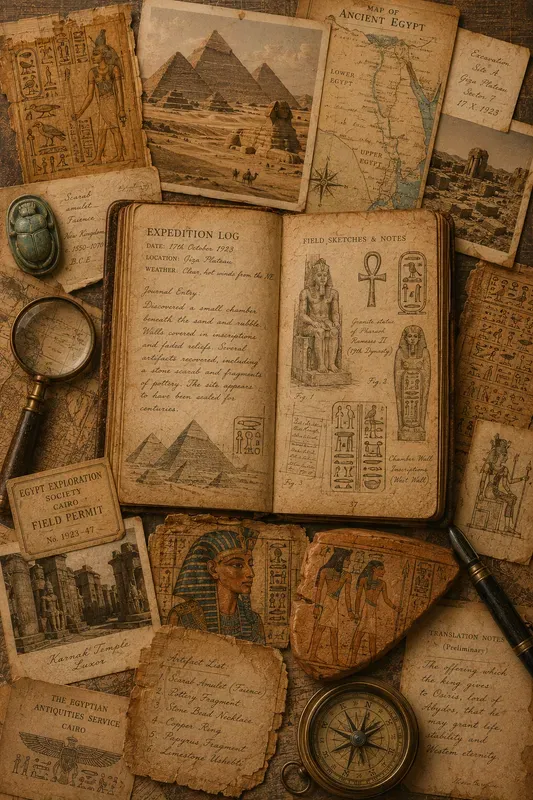 MAP OF
ANCIENT EGYPT
LOWER
EGYPT
UPPER
EGYPT
Excavation
Site A
Giza Plateau
Sector 7
17 X 1923
Scarab
amulet
Faience
New Kingdom
B.C.E.
EXPEDITION LOG
DATE: 17th October 1923
LOCATION: Giza Plateau
WEATHER: Clear, hot winds from the NE
Journal Entry
Discovered a small chamber
beneath the sand and rubble
Walls covered in inscriptions
and faded reliefs. Several
artifacts recovered, including
a stone scarab and fragments
of pottery. The site appears
to have been sealed for
centuries.
FIELD SKETCHES & NOTES
Granite statue
of Pharaoh
Ramses II
(19th Dynasty)
Fig. 1
Fig. 2
Fig. 3
Chamber Wall
Inscriptions
West Wall
37
EGYPT EXPLORATION
SOCIETY
CAIRO
FIELD PERMIT
No. 1923-47
Karnak Temple
Luxor
THE EGYPTIAN
ANTIQUITIES SERVICE
CAIRO
Artifact List
1. Scarab Amulet (Faience)
2. Pottery Fragment
3. Stone Bead Necklace
4. Copper Ring
5. Papyrus Fragment
6. Limestone Ushabti
TRANSLATION NOTES
(Preliminary)
The offering which
the king gives
to Osiris, lord of
Abydos, that he
may grant life,
stability and
Western eternity